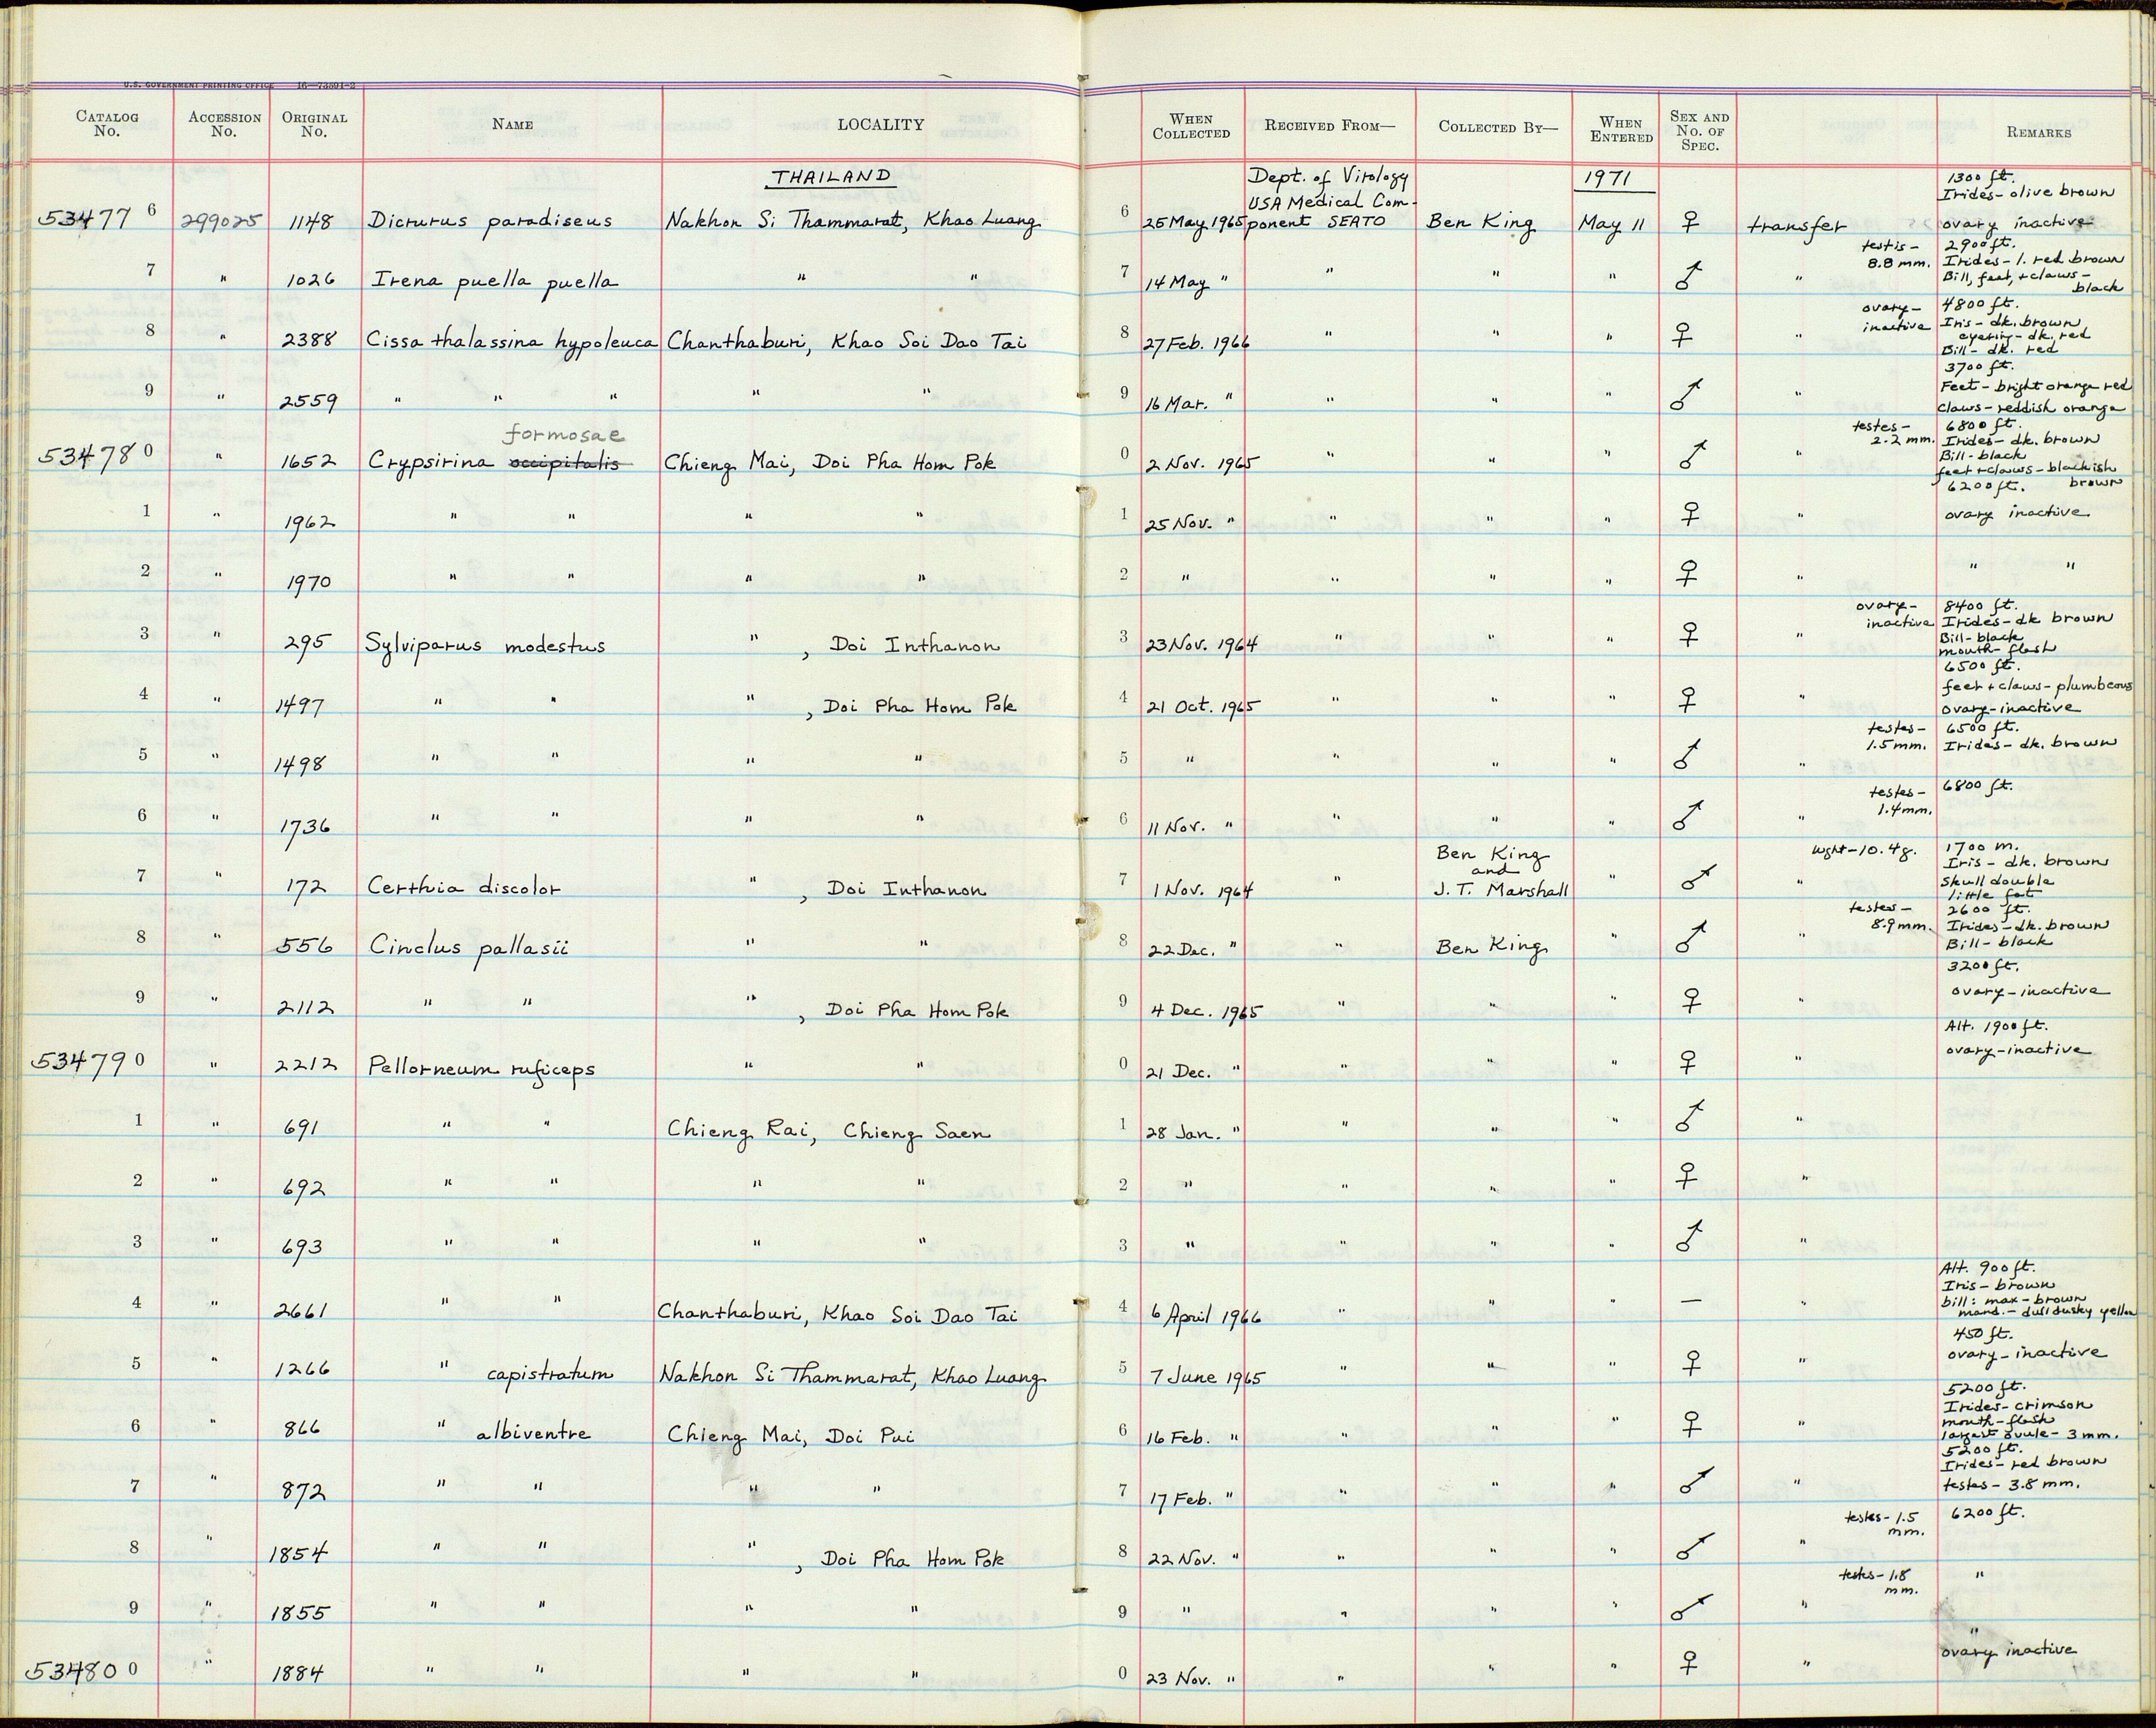 U.S. GOVERNMENT PRINTING OFFICE 16—73891-2
CATALOG No. ACCESSION No. ORIGINAL No. NAME LOCALITY WHEN COLLECTED RECEIVED FROM— COLLECTED BY— WHEN ENTERED SEX AND No. OF SPEC. REMARKS
THAILAND Dept. of Virology USA Medical Com- 1971 1300 ft. Irides-olive brown
534776 299025 1148 Dicrurus paradiseus Nakhon Si Thammarat, Khao Luang 6 25 May 1965 ponent SEATO Ben King May 11 ♀ transfer ovary inactive
7 " 1026 Irena puella puella " " 7 14 May " " " " ♂ " testis- 8.8 mm. 2900 ft. Irides-l. red brown Bill, feet, + claws- black
8 " 2388 Cissa thalassina hypoleuca Chanthaburi, Khao Soi Dao Tai 8 27 Feb. 1966 " " " ♀ " ovary- inactive 4800 ft. Iris-dk. brown eyering-dk. red Bill-dk. red
9 " 2559 " " " " " 9 16 Mar. " " " " ♂ " 3700 ft. Feet-bright orange red claws-reddish orange
formosae
534780 " 1652 Crypsirina occipitalis Chieng Mai, Doi Pha Hom Pok 0 2 Nov. 1965 " " " ♂ " testes- 2.2 mm. 6800 ft. Irides-dk. brown Bill-black feet + claws-blackish brown
1 " 1962 " " " " 1 25 Nov. " " " " ♀ " 6200 ft. ovary inactive
2 " 1970 " " " " 2 " " " " ♀ " " "
3 " 295 Sylviparus modestus " , Doi Inthanon 3 23 Nov. 1964 " " " ♀ " ovary- inactive 8400 ft. Irides-dk brown Bill-black mouth-flesh
4 " 1497 " " " , Doi Pha Hom Pok 4 21 Oct. 1965 " " " ♀ " 6500 ft. feet + claws-plumbeous ovary-inactive
5 " 1498 " " " " 5 " " " " ♂ " testes- 1.5 mm. 6500 ft. Irides-dk. brown
6 " 1736 " " " " 6 11 Nov. " " " " ♂ " testes- 1.4 mm. 6800 ft.
7 " 172 Certhia discolor " , Doi Inthanon 7 1 Nov. 1964 " Ben King and J. T. Marshall " ♂ " wght-10.4g. 1700 m. Iris-dk. brown skull double little fat
8 " 556 Cinclus pallasii " " 8 22 Dec. " " Ben King " ♂ " testes- 8.9 mm. 2600 ft. Irides-dk. brown Bill-black
9 " 2112 " " " , Doi Pha Hom Pok 9 4 Dec. 1965 " " " ♀ " 3200 ft. ovary-inactive
534790 " 2212 Pellorneum ruficeps " " 0 21 Dec. " " " " ♀ " Alt. 1900 ft. ovary-inactive
1 " 691 " " Chieng Rai, Chieng Saen 1 28 Jan. " " " " ♂ "
2 " 692 " " " " 2 " " " " ♀ "
3 " 693 " " " " 3 " " " " ♂ "
4 " 2661 " " Chanthaburi, Khao Soi Dao Tai 4 6 April 1966 " " " — " Alt. 900 ft. Iris-brown bill: max-brown mand.-dull dusky yellow
5 " 1266 " capistratum Nakhon Si Thammarat, Khao Luang 5 7 June 1965 " " " ♀ " 450 ft. ovary-inactive
6 " 866 " albiventre Chieng Mai, Doi Pui 6 16 Feb. " " " " ♀ " 5200 ft. Irides-crimson mouth-flesh largest ovule-3 mm.
7 " 872 " " " " 7 17 Feb. " " " " ♂ " 5200 ft. Irides-red brown testes-3.8 mm.
8 " 1854 " " " , Doi Pha Hom Pok 8 22 Nov. " " " " ♂ " testes-1.5 mm. 6200 ft.
9 " 1855 " " " " 9 " " " " ♂ " testes-1.8 mm. "
534800 " 1884 " " " " 0 23 Nov. " " " " ♀ " " ovary inactive